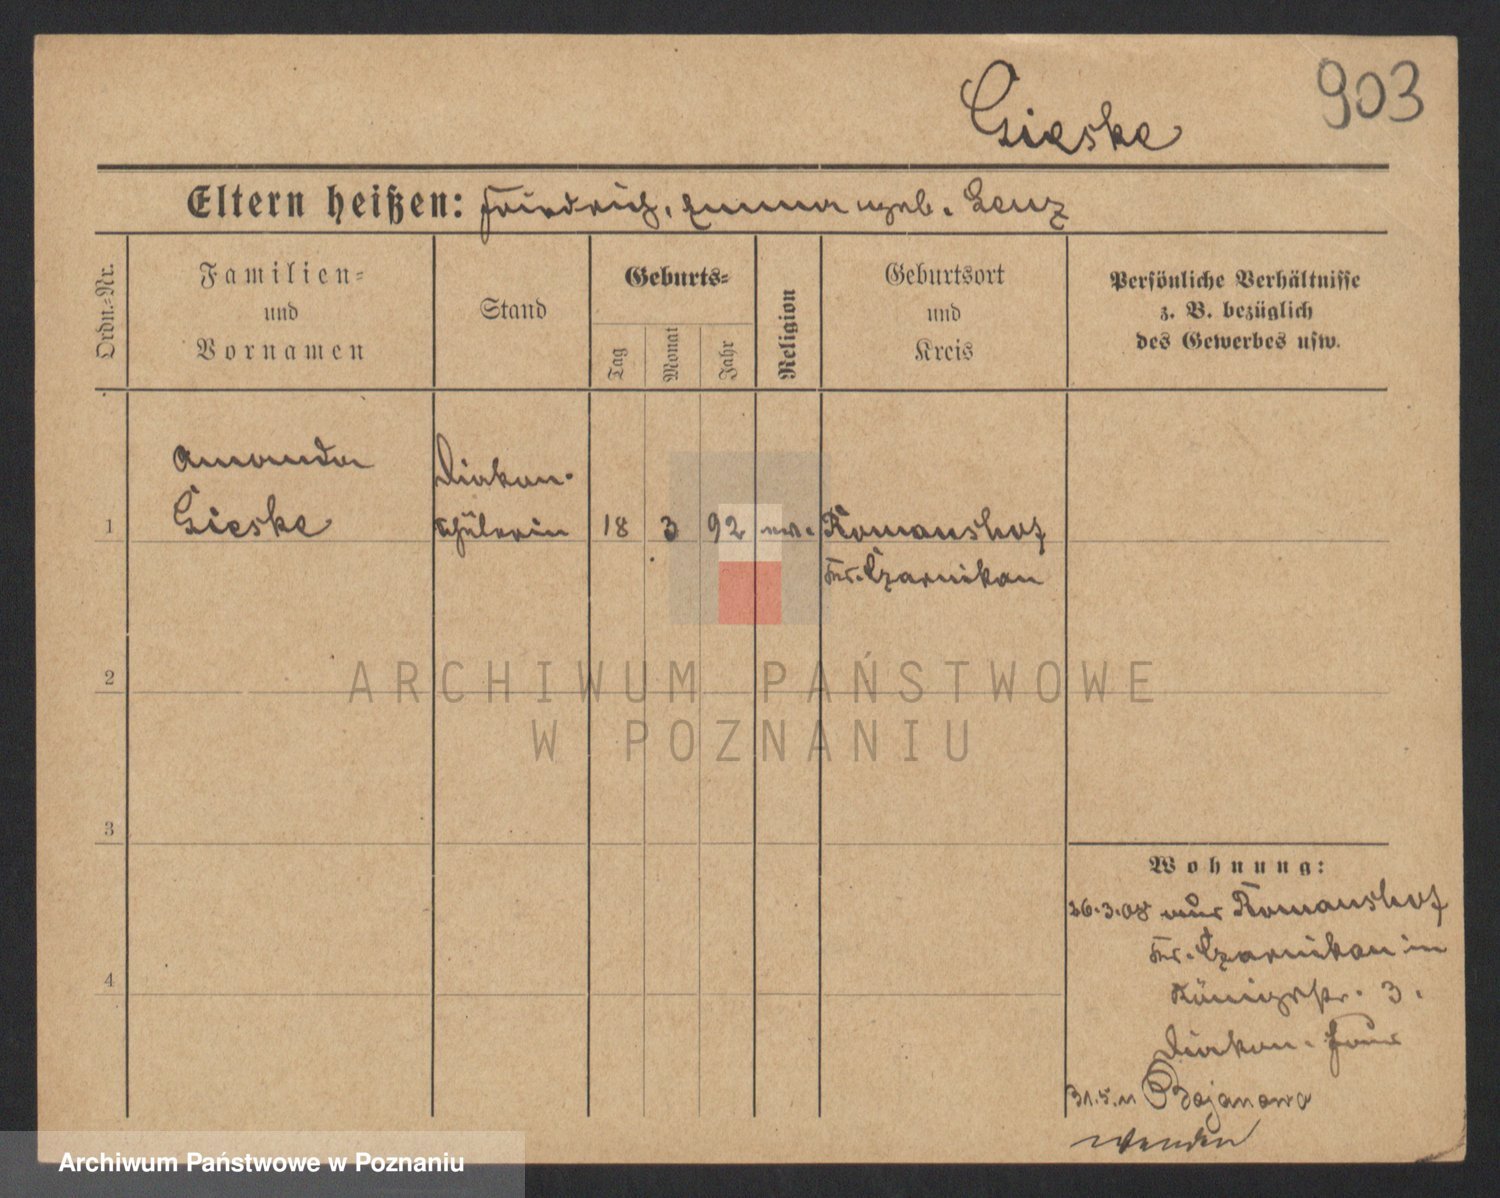 903
Gieske
Eltern heißen: Friedrich, Emma geb. Lenz
Ordn.=Nr.
Familien=
und
Vornamen
Stand
Geburts=
Tag
Monat
Jahr
Religion
Geburtsort
und
Kreis
Persönliche Verhältnisse
z. B. bezüglich
des Gewerbes usw.
Amanda
Gieske
Diakon.
schülerin
1
18
3
92
ev.
Romanshof
Kr. Czarnikau
2
3
4
Wohnung:
26.3.08 aus Romanshof
Kr. Czarnikau in
Königstr. 3.
Diakon. Haus
31.5.11 Bojanowo
wenden
ARCHIWUM PAŃSTWOWE
W POZNANIU
Archiwum Państwowe w Poznaniu